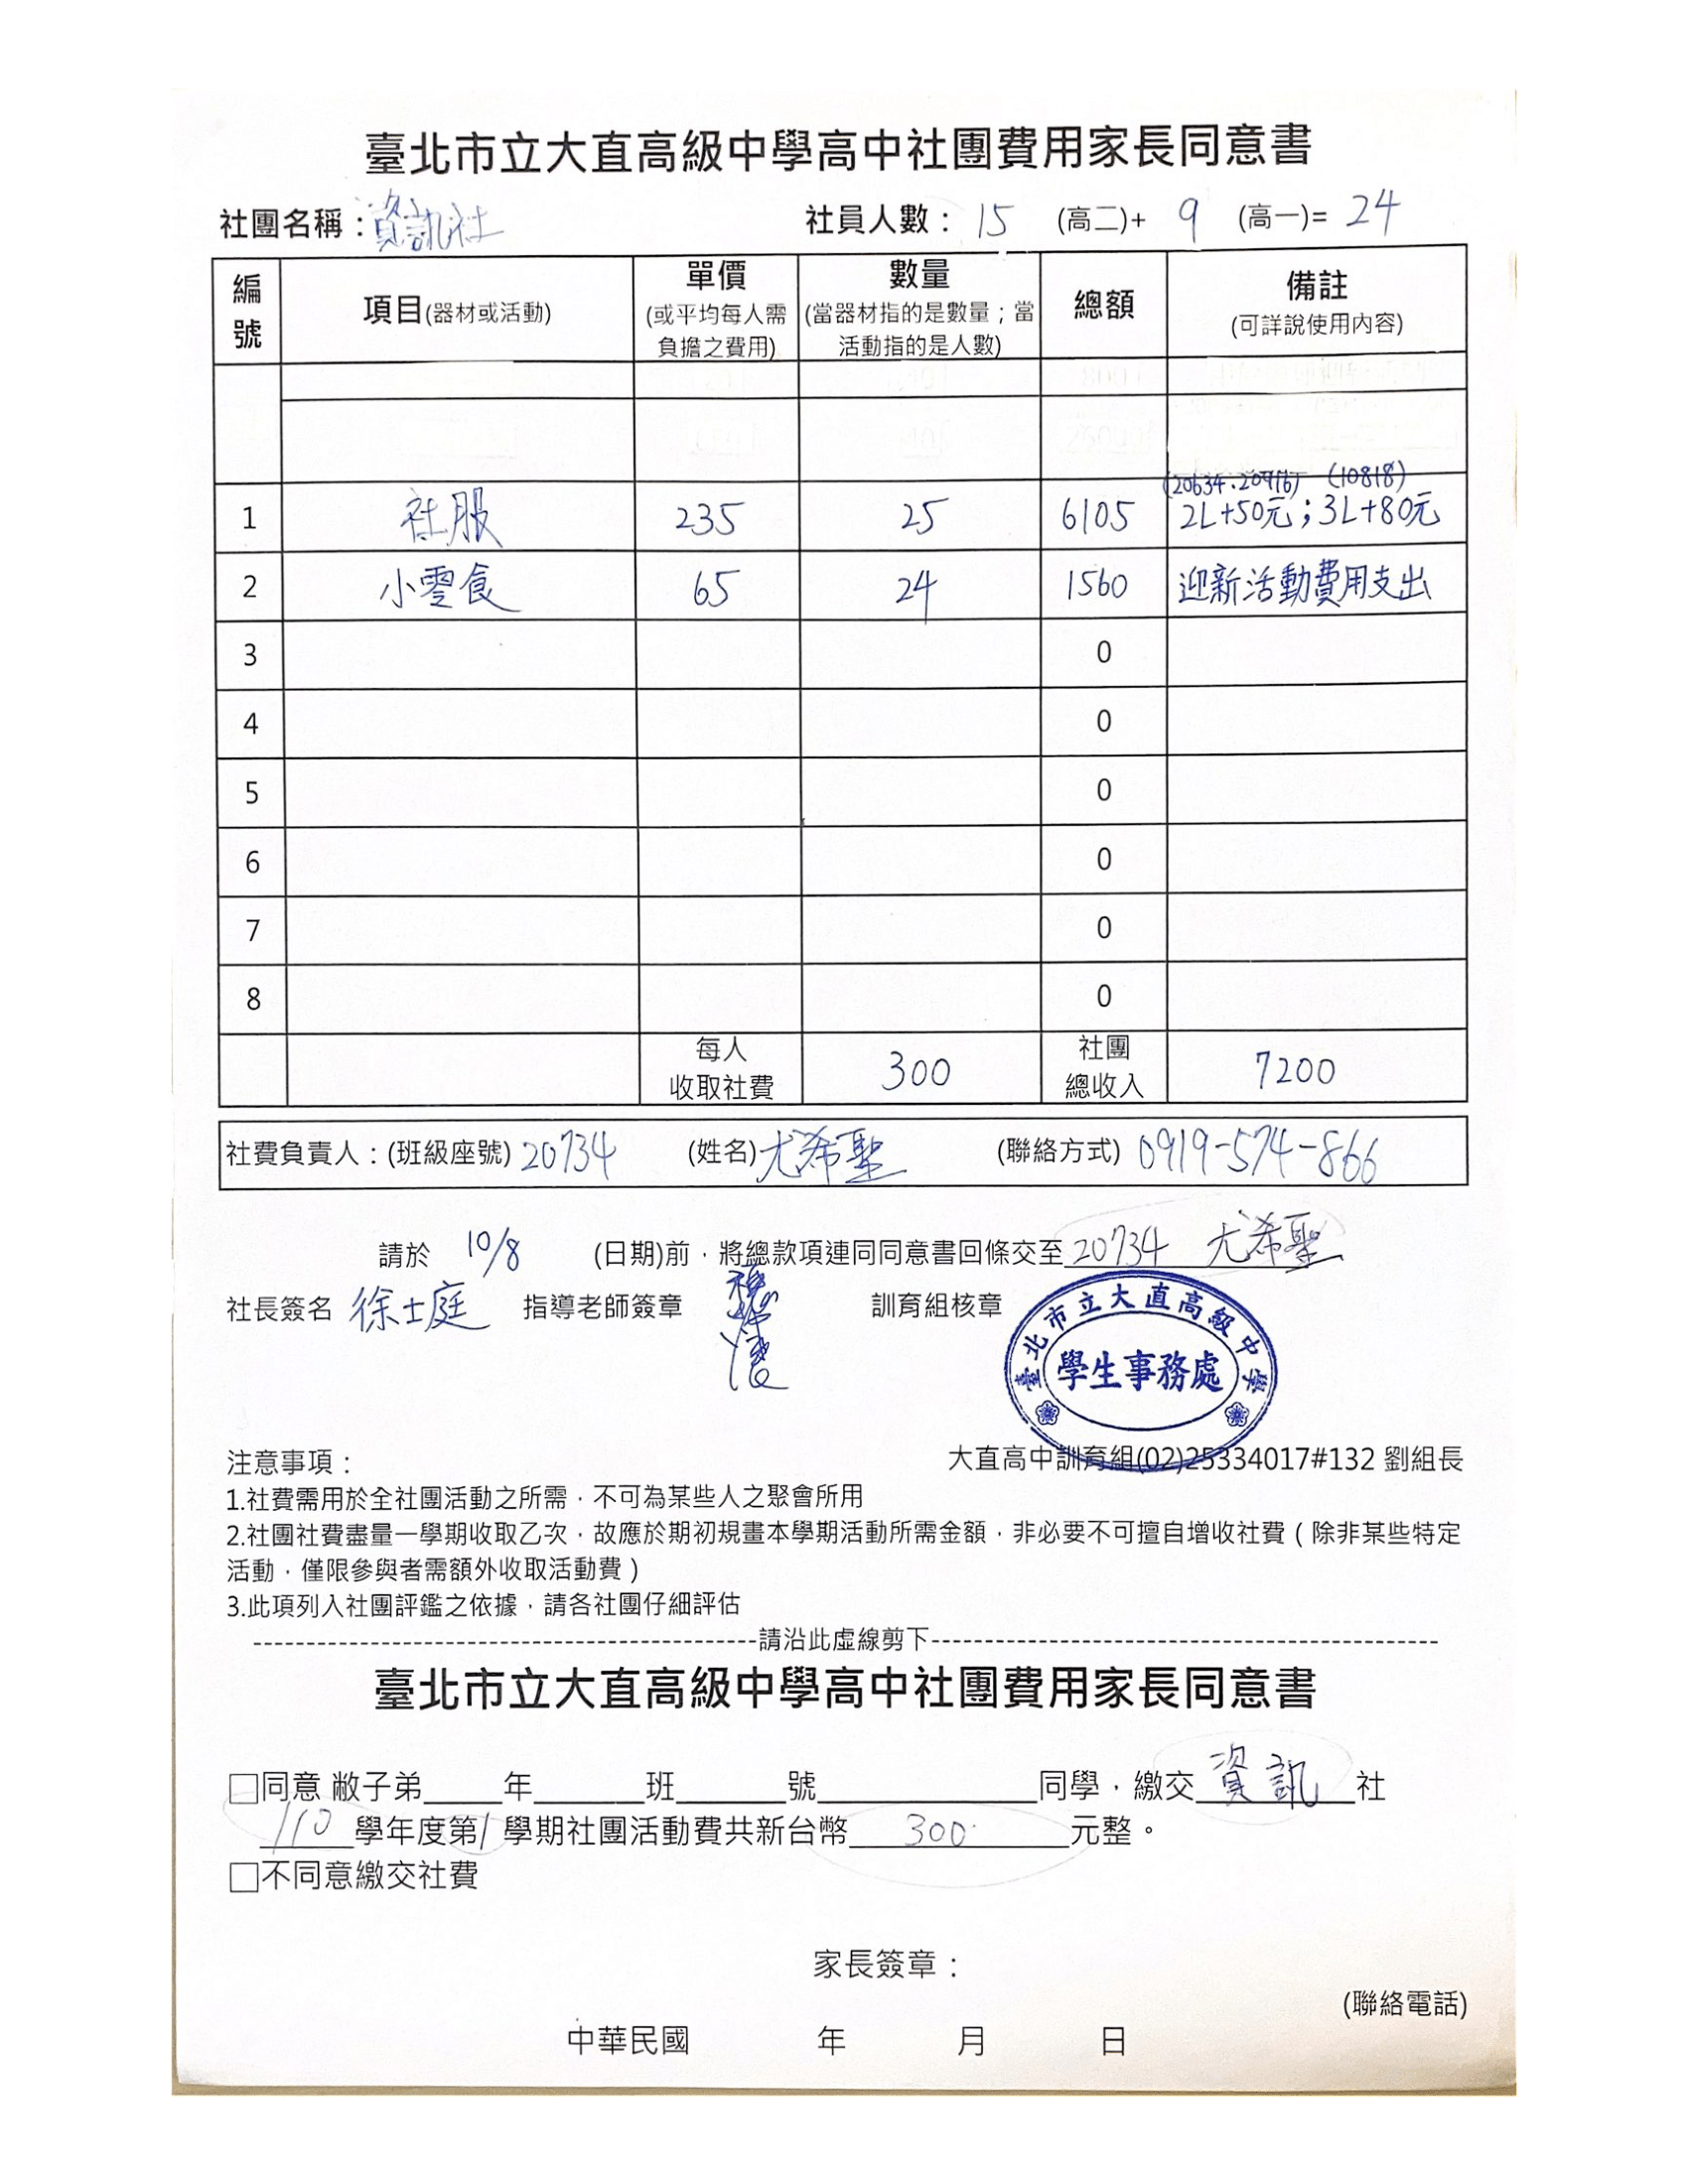 臺北市立大直高級中學高中社團費用家長同意書
社團名稱：資訊社 社員人數： 15 (高二)+ 9 (高一)= 24
編號 項目(器材或活動) 單價(或平均每人需負擔之費用) 數量(當器材指的是數量；當活動指的是人數) 總額 備註(可詳說使用內容)
(20634.20916) (10818)
1 社服 235 25 6105 2L+50元；3L+80元
2 小零食 65 24 1560 迎新活動費用支出
3 0
4 0
5 0
6 0
7 0
8 0
每人收取社費 300 社團總收入 7200
社費負責人：(班級座號) 20734 (姓名)尤希聖 (聯絡方式) 0919-574-866
請於 10/8 (日期)前，將總款項連同同意書回條交至 20734 尤希聖
社長簽名 徐士庭 指導老師簽章 訓育組核章
臺北市立大直高級中學
學生事務處
注意事項： 大直高中訓育組(02)25334017#132 劉組長
1.社費需用於全社團活動之所需，不可為某些人之聚會所用
2.社團社費盡量一學期收取乙次，故應於期初規畫本學期活動所需金額，非必要不可擅自增收社費（除非某些特定
活動，僅限參與者需額外收取活動費）
3.此項列入社團評鑑之依據，請各社團仔細評估
-----請沿此虛線剪下-----
臺北市立大直高級中學高中社團費用家長同意書
□同意 敝子弟____年____班____號________同學，繳交 資訊 社
110 學年度第1 學期社團活動費共新台幣 300 元整。
□不同意繳交社費
家長簽章：
(聯絡電話)
中華民國 年 月 日